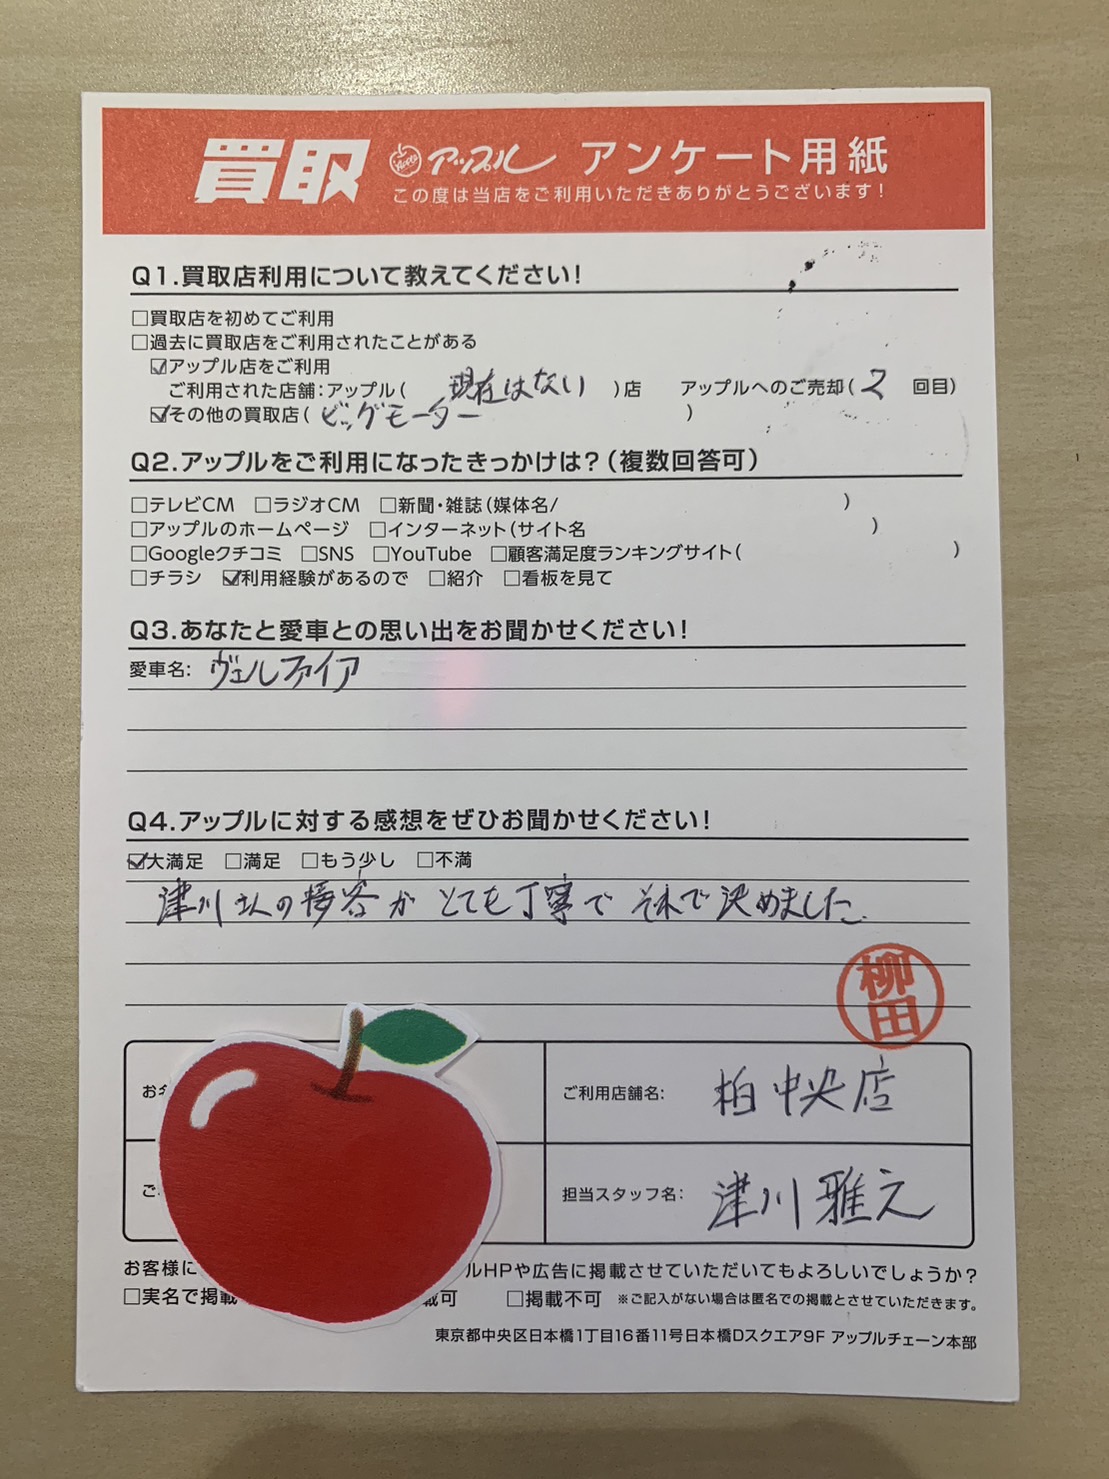 買取 Apple アップル アンケート用紙
この度は当店をご利用いただきありがとうございます!
Q1.買取店利用について教えてください!
□買取店を初めてご利用
□過去に買取店をご利用されたことがある
☑アップル店をご利用
ご利用された店舗:アップル( 現在はない )店 アップルへのご売却( 2 回目)
☑その他の買取店( ビッグモーター )
Q2.アップルをご利用になったきっかけは?(複数回答可)
□テレビCM □ラジオCM □新聞・雑誌(媒体名/ )
□アップルのホームページ □インターネット(サイト名 )
□Googleクチコミ □SNS □YouTube □顧客満足度ランキングサイト( )
□チラシ ☑利用経験があるので □紹介 □看板を見て
Q3.あなたと愛車との思い出をお聞かせください!
愛車名: ヴェルファイア
Q4.アップルに対する感想をぜひお聞かせください!
☑大満足 □満足 □もう少し □不満
津川さんの接客がとても丁寧でそれで決めました。
柳田
お
ご利用店舗名: 柏中央店
ご
担当スタッフ名: 津川雅之
お客様に ルHPや広告に掲載させていただいてもよろしいでしょうか?
□実名で掲載 載可 □掲載不可 ※ご記入がない場合は匿名での掲載とさせていただきます。
東京都中央区日本橋1丁目16番11号日本橋Dスクエア9F アップルチェーン本部